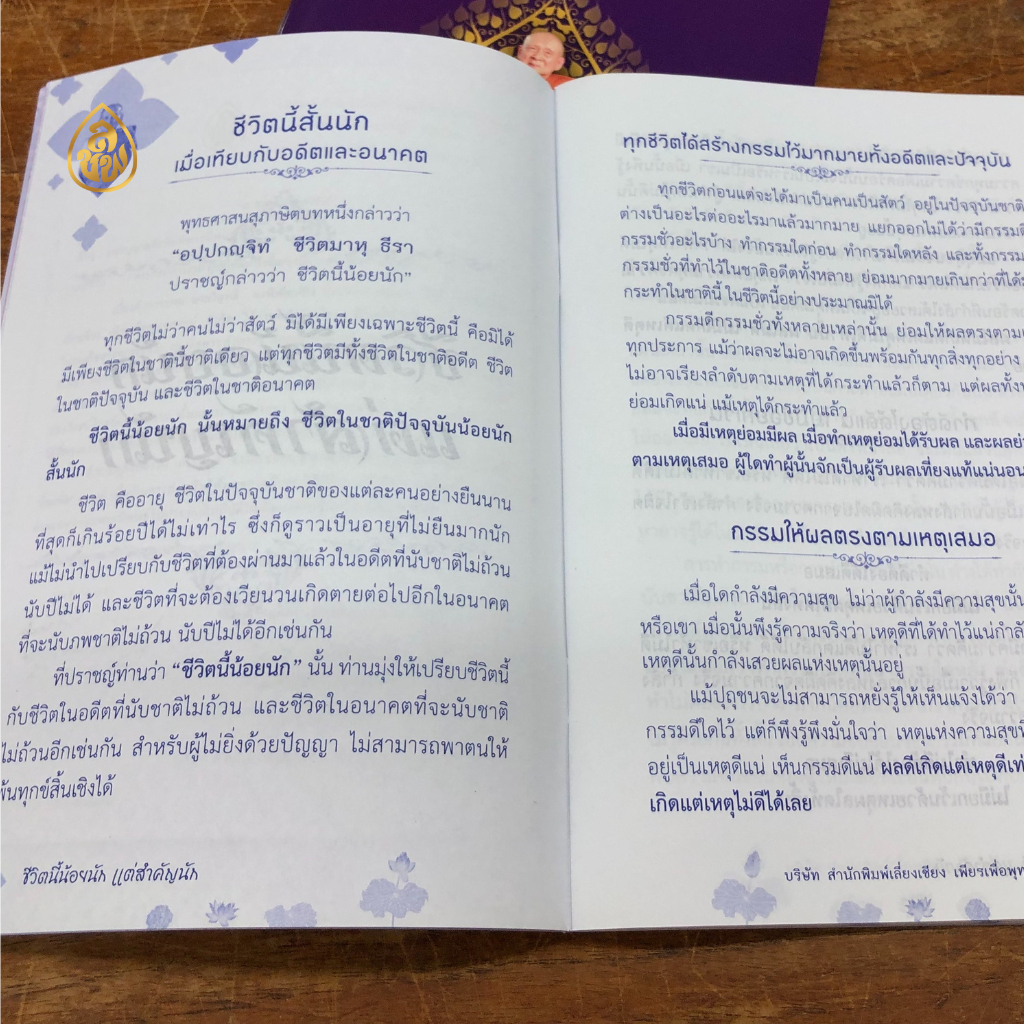 ชีวิตนี้สั้นนัก
เมื่อเทียบกับอดีตและอนาคต
พุทธศาสนสุภาษิตบทหนึ่งกล่าวว่า
“อปฺปกญฺจิทํ ชีวิตมาหุ ธีรา
ปราชญ์กล่าวว่า ชีวิตนี้น้อยนัก”
ทุกชีวิตไม่ว่าคนไม่ว่าสัตว์ มิได้มีเพียงเฉพาะชีวิตนี้ คือมิได้
มีเพียงชีวิตในชาตินี้ชาติเดียว แต่ทุกชีวิตมีทั้งชีวิตในชาติอดีต ชีวิต
ในชาติปัจจุบัน และชีวิตในชาติอนาคต
ชีวิตนี้น้อยนัก นั้นหมายถึง ชีวิตในชาติปัจจุบันน้อยนัก
สั้นนัก
ชีวิต คืออายุ ชีวิตในปัจจุบันชาติของแต่ละคนอย่างยืนนาน
ที่สุดก็เกินร้อยปีได้ไม่เท่าไร ซึ่งก็ดูราวเป็นอายุที่ไม่ยืนมากนัก
แม้ไม่นำไปเปรียบกับชีวิตที่ต้องผ่านมาแล้วในอดีตที่นับชาติไม่ถ้วน
นับปีไม่ได้ และชีวิตที่จะต้องเวียนวนเกิดตายต่อไปอีกในอนาคต
ที่จะนับภพชาติไม่ถ้วน นับปีไม่ได้อีกเช่นกัน
ที่ปราชญ์ท่านว่า “ชีวิตนี้น้อยนัก” นั้น ท่านมุ่งให้เปรียบชีวิตนี้
กับชีวิตในอดีตที่นับชาติไม่ถ้วน และชีวิตในอนาคตที่จะนับชาติ
ไม่ถ้วนอีกเช่นกัน สำหรับผู้ไม่ยิ่งด้วยปัญญา ไม่สามารถพาตนให้
พ้นทุกข์สิ้นเชิงได้
ชีวิตนี้น้อยนัก แต่สำคัญนัก
ทุกชีวิตได้สร้างกรรมไว้มากมายทั้งอดีตและปัจจุบัน
ทุกชีวิตก่อนแต่จะได้มาเป็นคนเป็นสัตว์ อยู่ในปัจจุบันชาติ
ต่างเป็นอะไรต่ออะไรมาแล้วมากมาย แยกออกไม่ได้ว่ามีกรรม
กรรมชั่วอะไรบ้าง ทำกรรมใดก่อน ทำกรรมใดหลัง และทั้งกรรม
กรรมชั่วที่ทำไว้ในชาติอดีตทั้งหลาย ย่อมมากมายเกินกว่าที่ได้
กระทำในชาตินี้ ในชีวิตนี้อย่างประมาณมิได้
กรรมดีกรรมชั่วทั้งหลายเหล่านั้น ย่อมให้ผลตรงตาม
ทุกประการ แม้ว่าผลจะไม่อาจเกิดขึ้นพร้อมกันทุกสิ่งทุกอย่าง
ไม่อาจเรียงลำดับตามเหตุที่ได้กระทำแล้วก็ตาม แต่ผลทั้ง
ย่อมเกิดแน่ แม้เหตุได้กระทำแล้ว
เมื่อมีเหตุย่อมมีผล เมื่อทำเหตุย่อมได้รับผล และผล
ตามเหตุเสมอ ผู้ใดทำผู้นั้นจักเป็นผู้รับผลเที่ยงแท้แน่นอน
กรรมให้ผลตรงตามเหตุเสมอ
เมื่อใดกำลังมีความสุข ไม่ว่าผู้กำลังมีความสุขนั้น
หรือเขา เมื่อนั้นพึงรู้ความจริงว่า เหตุดีที่ได้ทำไว้แน่
เหตุดีนั้นกำลังเสวยผลแห่งเหตุนั้นอยู่
แม้ปุถุชนจะไม่สามารถหยั่งรู้ให้เห็นแจ้งได้ว่า
กรรมดีใดไว้ แต่ก็พึงรู้พึงมั่นใจว่า เหตุแห่งความสุข
อยู่เป็นเหตุดีแน่ เห็นกรรมดีแน่ ผลดีเกิดแต่เหตุดี
เกิดแต่เหตุไม่ดีได้เลย
บริษัท สำนักพิมพ์เลี่ยงเชียง เพียรเพื่อพุท